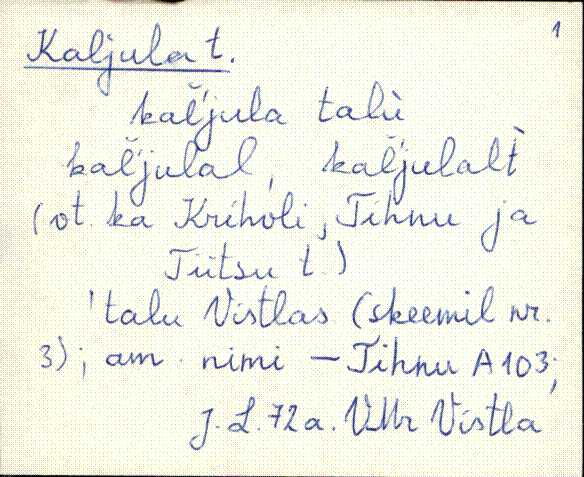 1
Kaljula t.
kal̆'jula talù
kal̆'julal, kal̆'julalt̀
(vt. ka Krihvli, Tihnu ja
Tiitsu t.)
'talu Vistlas (skeemil nr.
3); am. nimi – Tihnu A 103;
J. L. 72 a. VMr Vistla